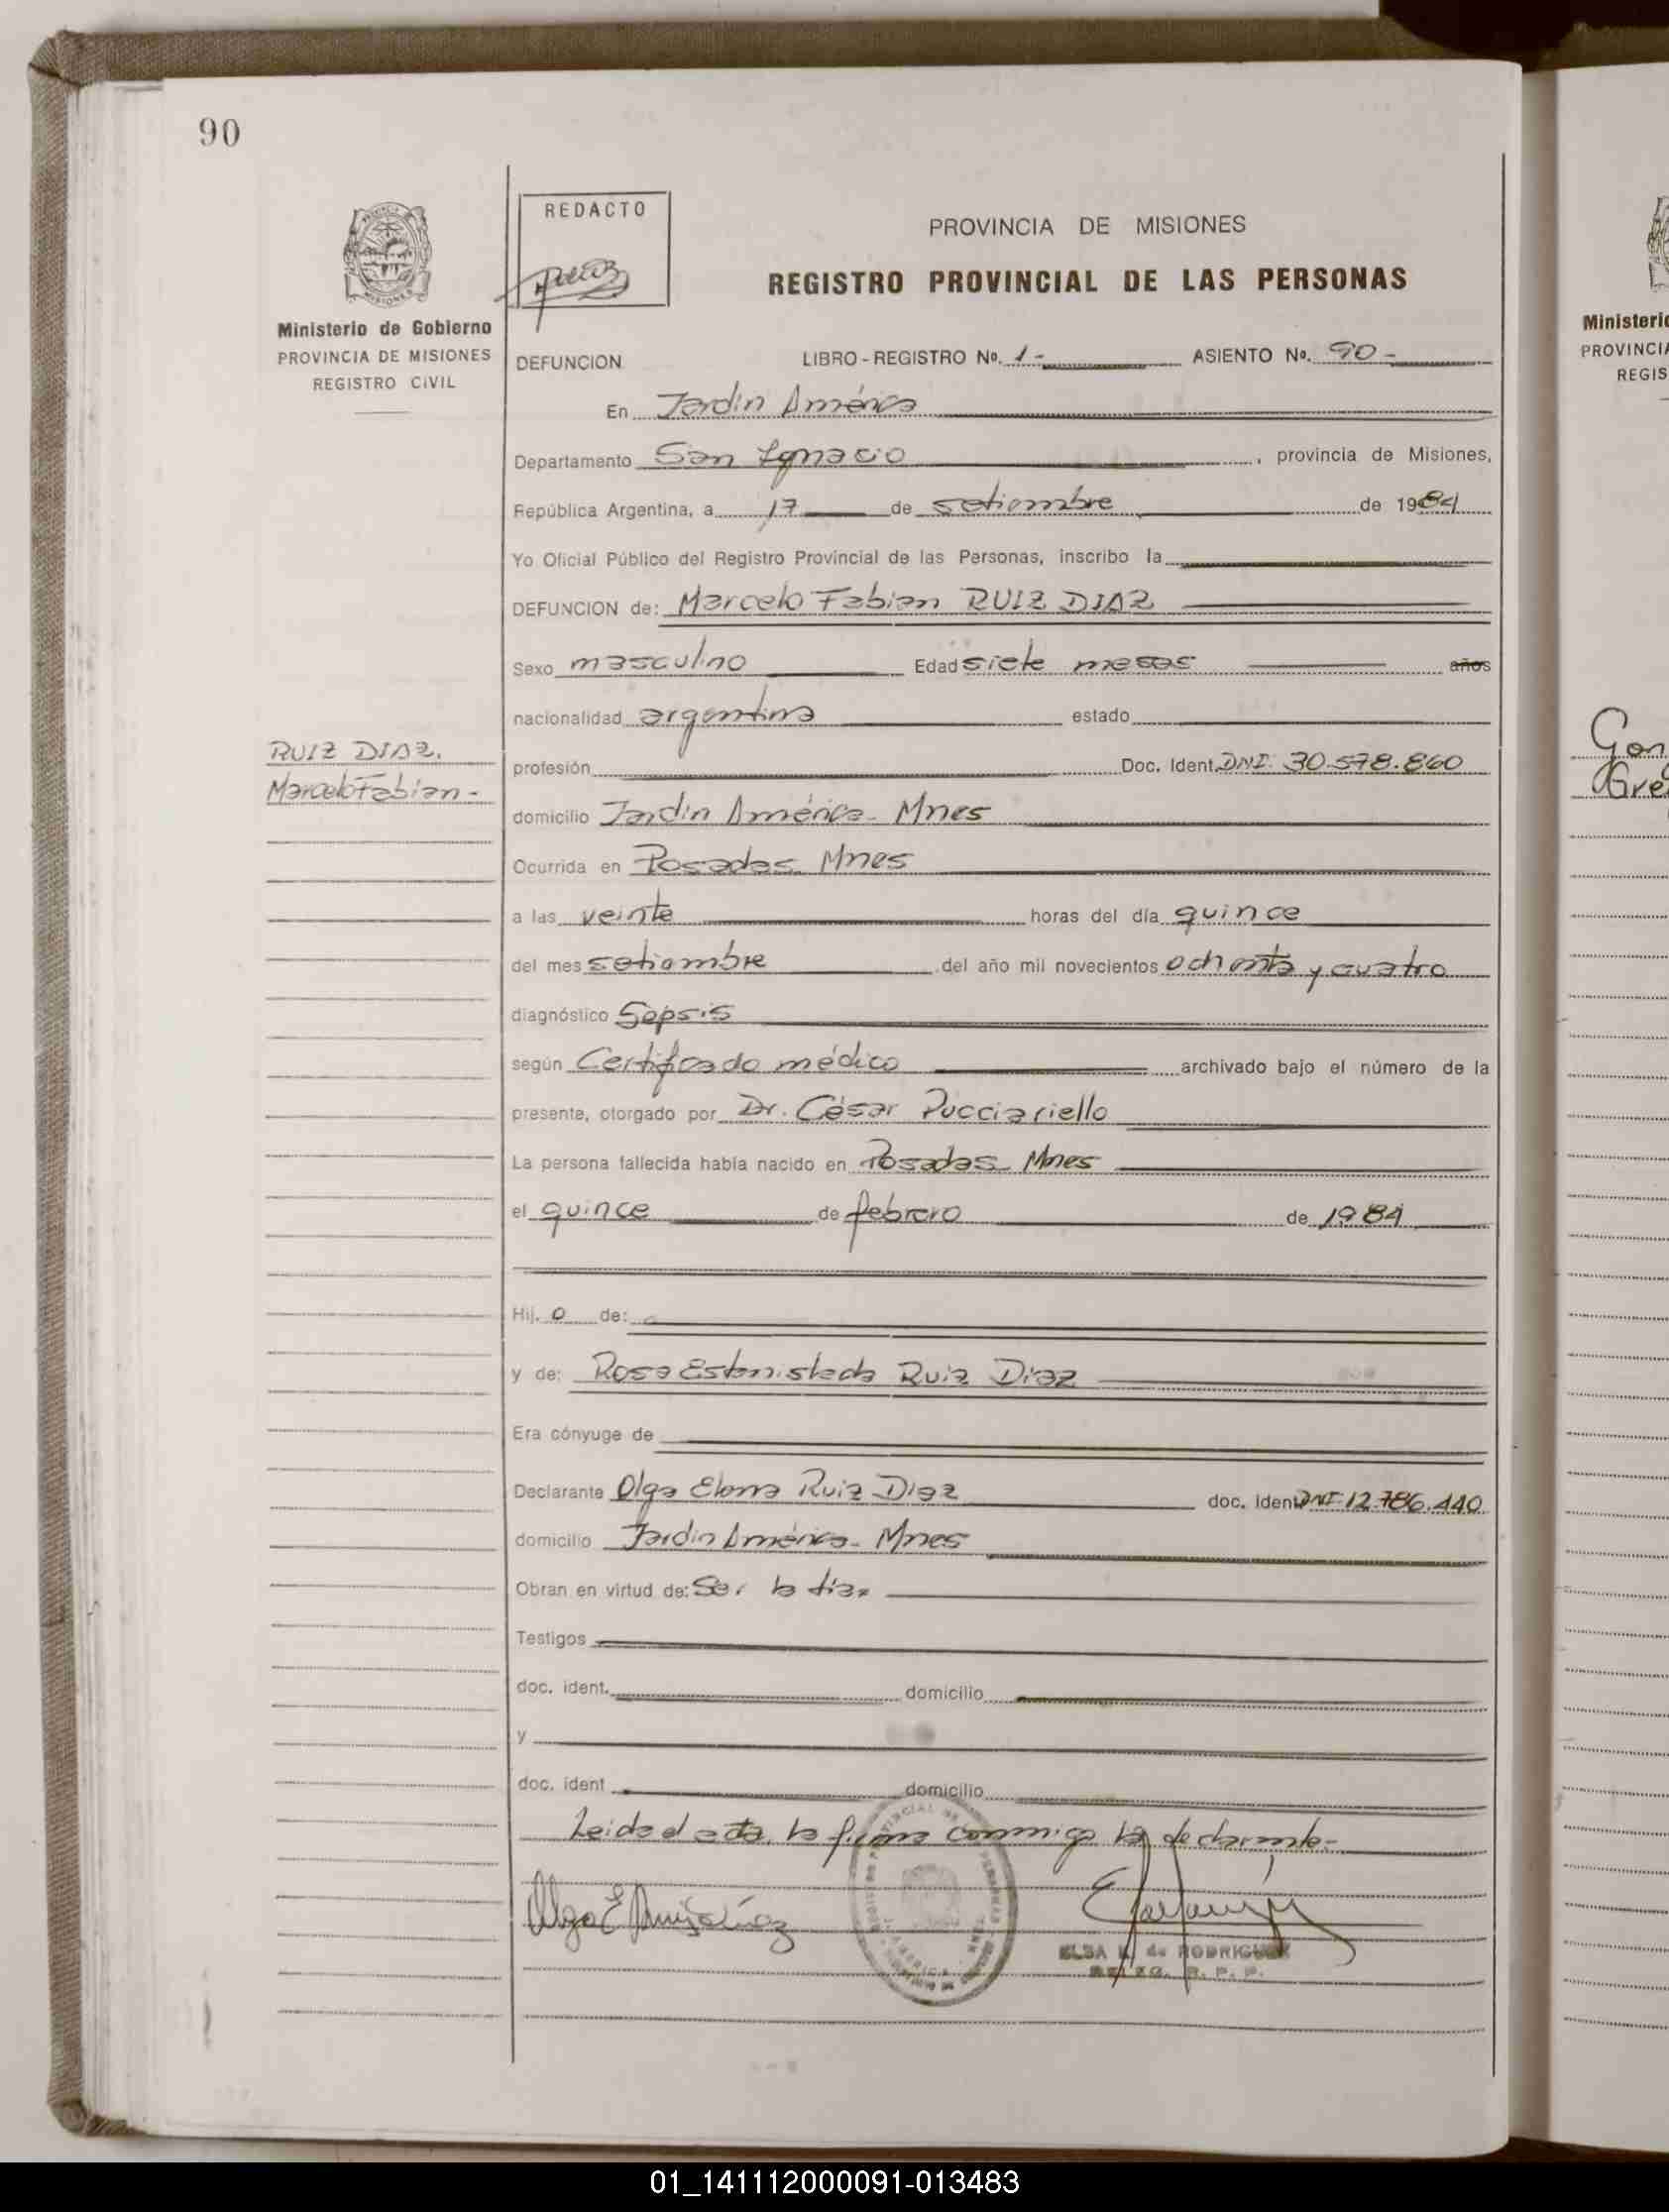 90
REDACTO
PROVINCIA DE MISIONES
REGISTRO PROVINCIAL DE LAS PERSONAS
Ministerio de Gobierno
PROVINCIA DE MISIONES
REGISTRO CIVIL
DEFUNCION LIBRO - REGISTRO No. 1 - ASIENTO No. 90 -
En Jardin América
Departamento San Ignacio , provincia de Misiones,
República Argentina, a 17 de setiembre de 1984
Yo Oficial Público del Registro Provincial de las Personas, inscribo la
DEFUNCION de: Marcelo Fabian RUIZ DIAZ
Sexo masculino Edad siete meses años
nacionalidad argentina estado
RUIZ DIAZ.
Marcelo Fabian -
profesión Doc. Ident. DNI. 30.578.860
domicilio Jardin América - Mnes
Ocurrida en Posadas. Mnes
a las veinte horas del día quince
del mes setiembre del año mil novecientos ochenta y cuatro
diagnóstico Sepsis
según Certificado médico archivado bajo el número de la
presente, otorgado por Dr. César Pucciariello
La persona fallecida había nacido en Posadas - Mnes
el quince de febrero de 1984
Hij. o de:
y de: Rosa Estanislada Ruiz Diaz
Era cónyuge de
Declarante Olga Elena Ruiz Diaz doc. Ident DNI 12.786.440
domicilio Jardin América - Mnes
Obran en virtud de: Ser la tia
Testigos
doc. ident. domicilio
y
doc. ident domicilio
Leida el acta, la firma conmigo la declarante -
Olga E Ruiz Diaz
ELSA de RODRIGUEZ
R. P. P.
Ministerio
PROVINCIA
REGIS
Gon
Gre
01_141112000091-013483